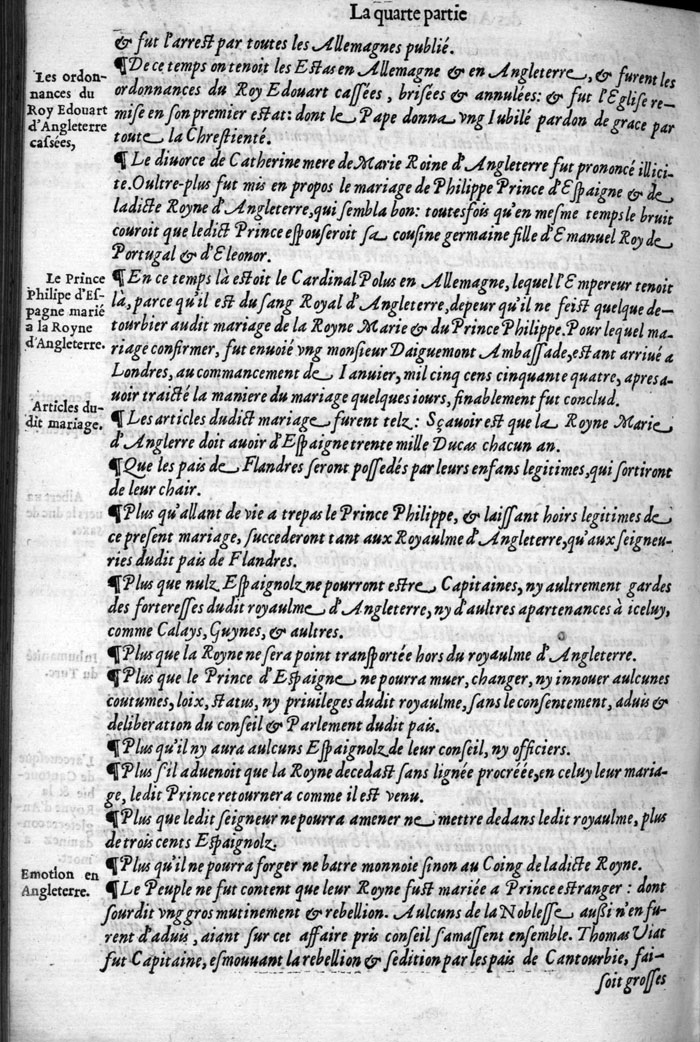 La quarte partie
& fut l'arrest par toutes les Allemagnes publié.
¶ De ce temps on tenoit les Estas en Allemagne & en Angleterre, & furent les
ordonnances du Roy Edouart cassées, brisées & annulées: & fut l'Eglise re-
mise en son premier estat: dont le Pape donna vng Iubilé pardon de grace par
toute la Chrestienté.
Les ordon-
nances du
Roy Edouart
d'Angleterre
cassées,
¶ Le diuorce de Catherine mere de Marie Roine d'Angleterre fut prononcé illici-
te. Oultre-plus fut mis en propos le mariage de Philippe Prince d'Espaigne & de
ladicte Royne d'Angleterre, qui sembla bon: toutesfois qu'en mesme temps le bruit
couroit que ledict Prince espouseroit sa cousine germaine fille d'Emanuel Roy de
Portugal & d'Eleonor.
¶ En ce temps là estoit le Cardinal Polus en Allemagne, lequel l'Empereur tenoit
là, parce qu'il est du sang Royal d'Angleterre, depeur qu'il ne feist quelque de-
tourbier audit mariage de la Royne Marie & du Prince Philippe. Pour lequel ma-
riage confirmer, fut enuoié vng monsieur Daiguemont Ambassade, estant arriué à
Londres, au commancement de Ianuier, mil cinq cens cinquante quatre, apres a-
uoir traicté la maniere du mariage quelques iours, finablement fut conclud.
Le Prince
Philipe d'Es-
pagne marié
a la Royne
d'Angleterre.
¶ Les articles dudict mariage furent telz: Sçauoir est que la Royne Marie
d'Anglerre doit auoir d'Espaigne trente mille Ducas chacun an.
Articles du-
dit mariage.
¶ Que les païs de Flandres seront possedés par leurs enfans legitimes, qui sortiront
de leur chair.
¶ Plus qu'allant de vie a trepas le Prince Philippe, & laissant hoirs legitimes de
ce present mariage, succederont tant aux Royaulme d'Angleterre, qu'aux seigneu-
ries dudit païs de Flandres.
¶ Plus que nulz Espaignolz ne pourront estre Capitaines, ny aultrement gardes
des forteresses dudit royaulme d'Angleterre, ny d'aultres apartenances à iceluy,
comme Calays, Guynes, & aultres.
¶ Plus que la Royne ne sera point transportée hors du royaulme d'Angleterre.
¶ Plus que le Prince d'Espaigne ne pourra muer, changer, ny innouer aulcunes
coutumes, loix, status, ny priuileges dudit royaulme, sans le consentement, aduis &
deliberation du conseil & Parlement dudit païs.
¶ Plus qu'il ny aura aulcuns Espaignolz de leur conseil, ny officiers.
¶ Plus s'il aduenoit que la Royne decedast sans lignée procréée, en celuy leur maria-
ge, ledit Prince retournera comme il est venu.
¶ Plus que ledit seigneur ne pourra amener ne mettre dedans ledit royaulme, plus
de trois cents Espaignolz.
¶ Plus qu'il ne pourra forger ne batre monnoie sinon au Coing de ladicte Royne.
¶ Le Peuple ne fut content que leur Royne fust mariée a Prince estranger: dont
sourdit vng gros mutinement & rebellion. Aulcuns de la Noblesse aussi n'en fu-
rent d'aduis, aiant sur cet affaire pris conseil s'amassent ensemble. Thomas Uiat
fut Capitaine, esmouuant la rebellion & sedition par les païs de Cantourbie, fai-
soit grosses
Emotion en
Angleterre.